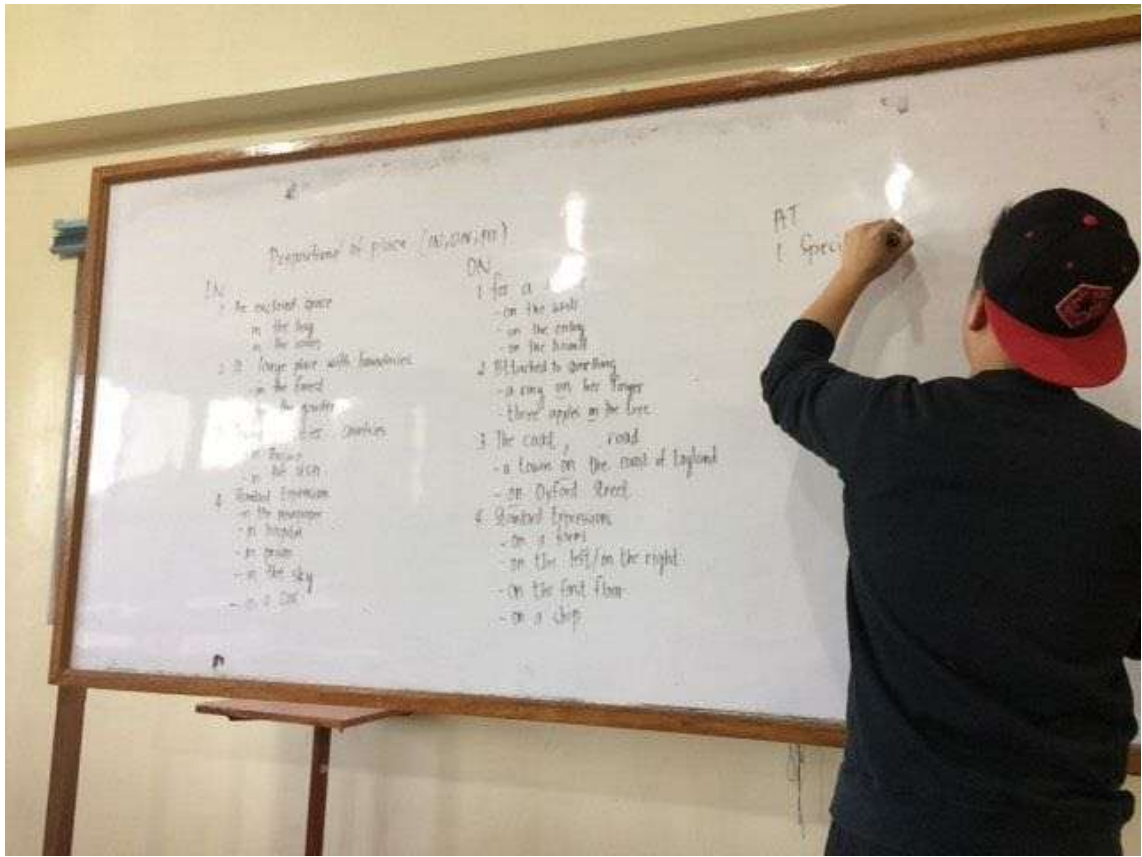 of place (IN, ON, AT)
IN
An enclosed space
in the bag
in the
2 a large place with boundaries
- in the forest
in the
countries
in
in
4 Standard Expression
- in the newspaper
- in
- in
- in the sky
- in a car
ON
1 for a
- on the wall
- on the
- on the
2 Attached to something
- a ring on her finger
- three apples on the tree
3 The coast, road
- a town on the coast of England
- on Oxford Street
4 Standard Expressions
- on a farm
- on the left/on the right
- on the first floor
- on a ship
AT
1 Speci